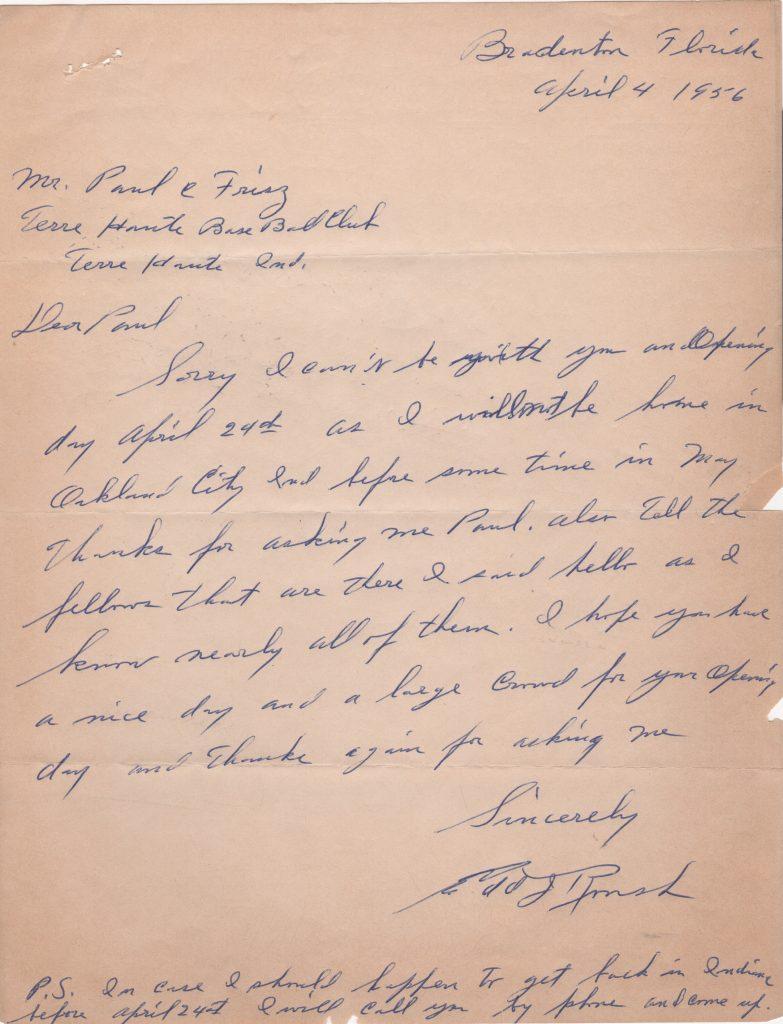 Bradenton Florida
April 4 1956
Mr. Paul C Frisz
Terre Haute Base Ball Club
Terre Haute Ind.
Dear Paul
Sorry I can't be with you on Opening
day April 24th as I will not be home in
Oakland City Ind before some time in May
Thanks for asking me Paul. also Tell the
fellows that are there I said hello as I
know nearly all of them. I hope you have
a nice day and a large Crowd for your Opening
day and Thanks again for asking me
Sincerely
Edd J Roush
P.S. In case I should happen to get back in Indiana
before April 24th I will call you by phone and come up.